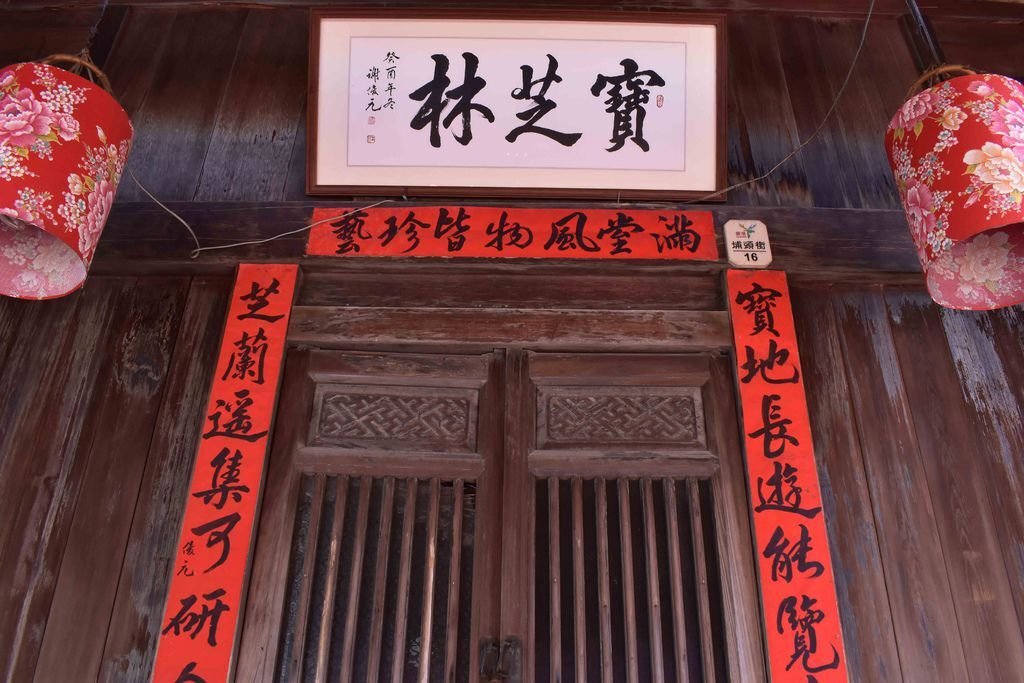 寶芝林
癸酉年冬
謝俊元
滿堂風物皆珍藝
埔頭街
16
寶地長遊能覽
芝蘭遥集可研
俊元